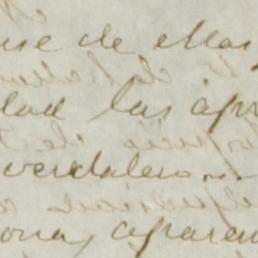 use de ellas
dad las apr
verdadero
ona, aparen